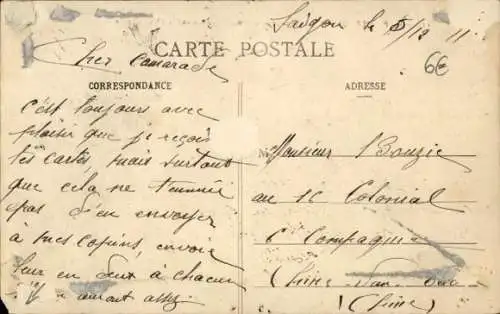 Saigon le 5/12 11
CARTE POSTALE
6€
Cher Camarade
CORRESPONDANCE
ADRESSE
C'est toujours avec
plaisir que je reçois
tes cartes, mais surtout
que cela ne t'ennuie
pas d'en envoyer
à mes copins, envoie
leur en deux à chacun
auront assez
Monsieur Bouzie
au 1c Colonial
6 Compagnie
(Chine)